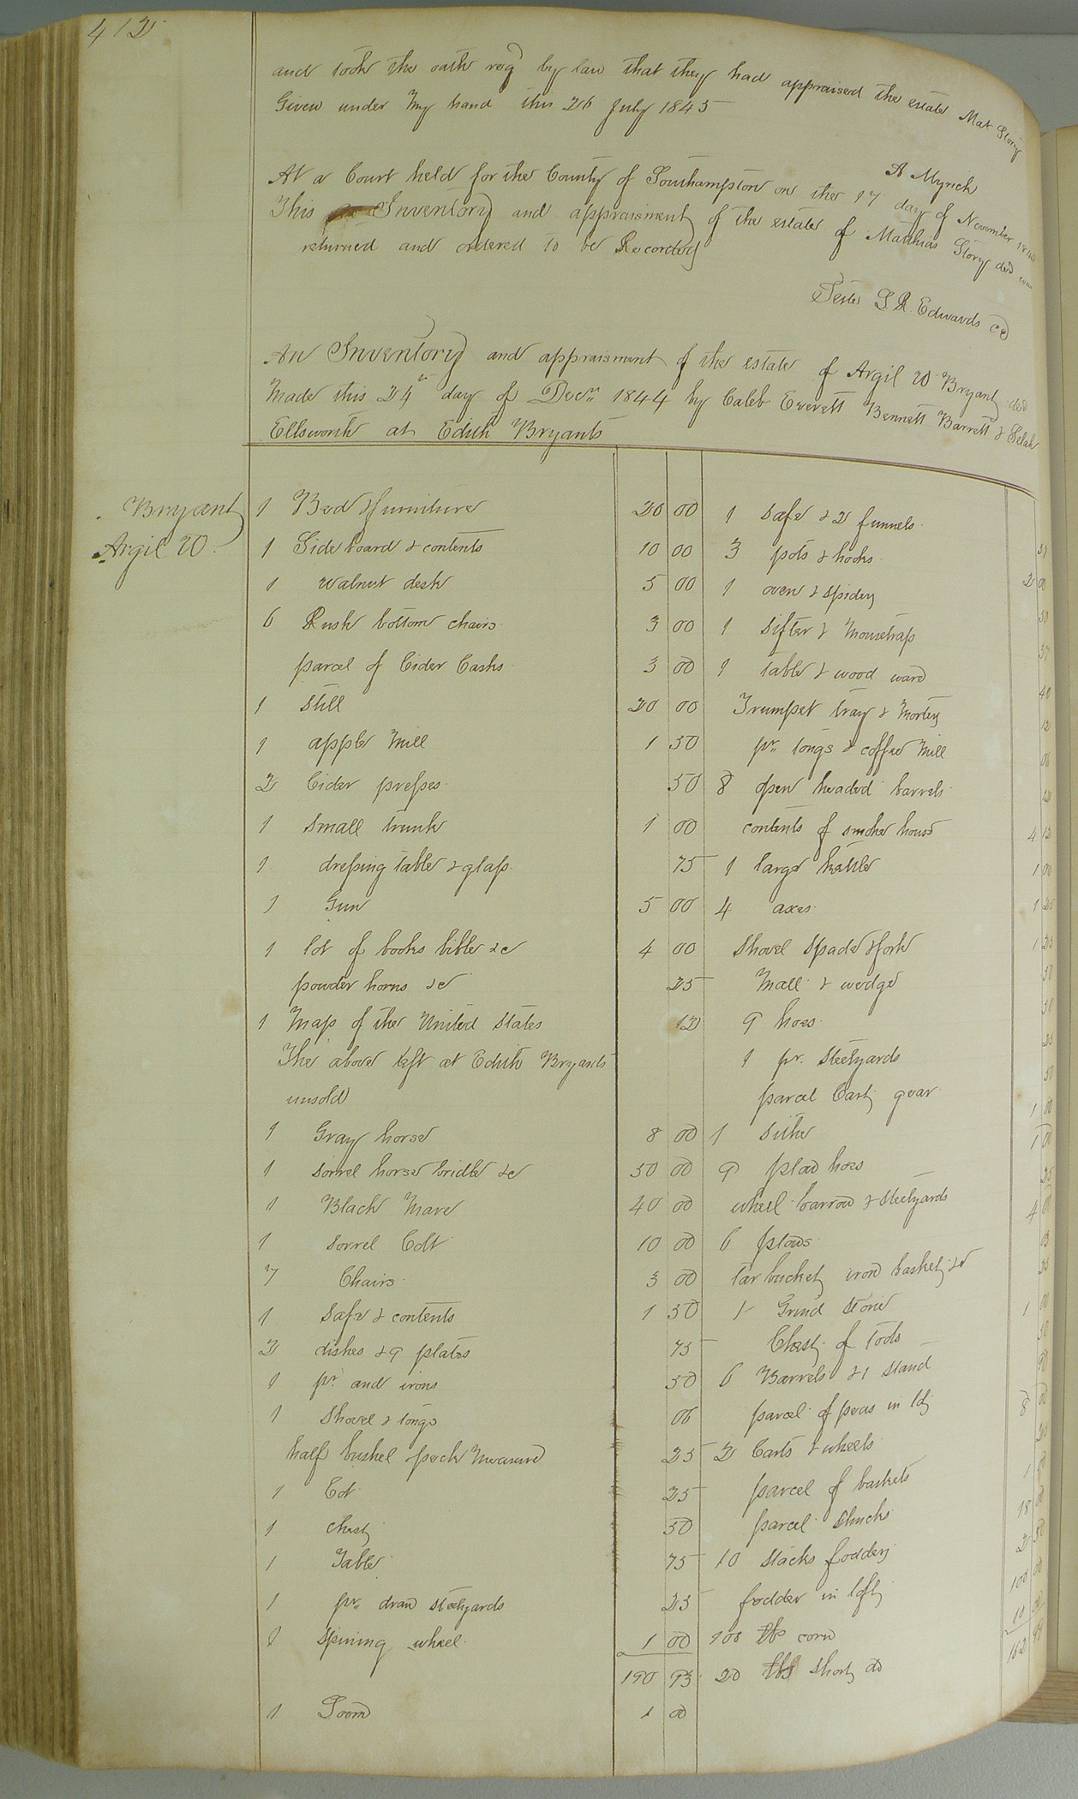 412
and took the oath reqd by law that they had appraised the estate Mat Story
Given under my hand this 26 July 1845
A Myrick
At a Court held for the County of Southampton on the 17 day of November
This Inventory and appraisment of the estate of Matthias Story decd
returned and ordered to be Recorded
Teste L R Edwards CC
An Inventory and appraisment of the estate of Argil W Bryant decd
Made this 24th day of Decr 1844 by Caleb Everett Bennett Barrett & Selah
Ellsworth at Edith Bryants
Bryant
Argil W
1 Bed & furniture 20 00
1 Side board & contents 10 00
1 walnut desk 5 00
6 Rush bottom chairs 3 00
parcel of Cider Casks 3 00
1 Still 20 00
1 apple Mill 1 50
2 Cider presses 50
1 Small trunk 1 00
1 dressing table & glass 75
1 Gun 5 00
1 lot of books bible &c 4 00
powder horns &c 25
1 Map of the United States 12
The above left at Edith Bryants
unsold
1 Gray horse 8 00
1 sorrel horse bridle &c 50 00
1 Black Mare 40 00
1 Sorrel Colt 10 00
7 Chairs 3 00
1 Safe & contents 1 50
2 dishes & 9 plates 75
1 pr. and irons 50
1 Shovel & tongs 06
half bushel & peck Measure 25
1 Cot 25
1 chest 50
1 Table 75
1 pr. draw steelyards 25
1 Spining wheel 1 00
190 93
1 Loom 1 00
1 Safe & 2 funnels
3 pots & hooks
1 oven & spider
1 Sifter & Mousetrap
1 table & wood ware
Trumpet tray & Morter
pr. tongs & coffee Mill
8 open headed barrels
contents of smoke house
1 large kettle
4 axes
Shovel Spade & fork
Mall & wedge
9 hoes
1 pr. Steelyards
parcel Cart gear
1 Sithe
9 plow hoes
wheel barrow & steelyards
6 plows
tar bucket iron basket &c
1 Grind Stone
Chest of tools
6 Barrels & 1 Stand
parcel of peas in
2 Carts & wheels
parcel of baskets
parcel Shucks
10 Stacks fodder
fodder in loft
108 corn
20 Short do